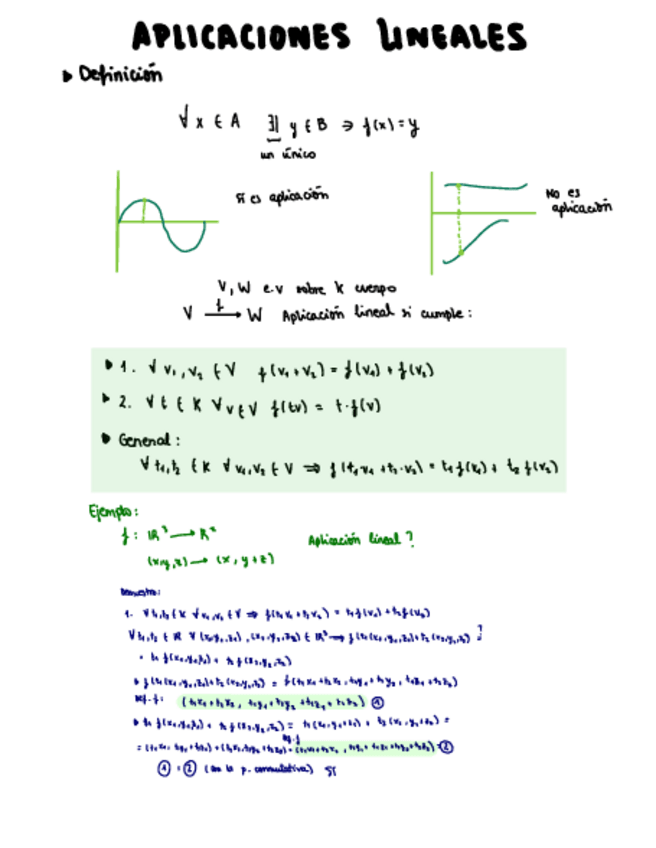 APLICACIONES LINEALES
Definición
∀ x ∈ A ∃| y ∈ B ⇒ f(x) = y
un único
Sí es aplicación
No es
aplicación
V, W e.v sobre K cuerpo
V —f→ W Aplicación lineal si cumple:
1. ∀ v₁, v₂ ∈ V f(v₁+v₂) = f(v₁) + f(v₂)
2. ∀ t ∈ K ∀ v ∈ V f(tv) = t·f(v)
General:
∀ t₁,t₂ ∈ K ∀ v₁,v₂ ∈ V ⇒ f(t₁v₁ + t₂·v₂) = t₁f(v₁) + t₂f(v₂)
Ejemplo:
f: ℝ³ → ℝ²
Aplicación lineal?
(x,y,z) → (x, y+z)
1. ∀ t₁,t₂ ∈ K ∀ v₁,v₂ ∈ V ⇒ f(t₁v₁+t₂v₂) = t₁f(v₁)+t₂f(v₂)
∀ t₁,t₂ ∈ ℝ ∀ (x₁,y₁,z₁), (x₂,y₂,z₂) ∈ ℝ³ ⇒ f(t₁(x₁,y₁,z₁)+t₂(x₂,y₂,z₂) ?
= t₁ f(x₁,y₁,z₁) + t₂ f(x₂,y₂,z₂)
f(t₁(x₁,y₁,z₁)+t₂(x₂,y₂,z₂) = f(t₁x₁+t₂x₂, t₁y₁+t₂y₂, t₁z₁+t₂z₂)
Def. f: (t₁x₁+t₂x₂, t₁y₁+t₂y₂+t₁z₁+t₂z₂) ①
t₁ f(x₁,y₁,z₁) + t₂ f(x₂,y₂,z₂) = t₁(x₁,y₁+z₁) + t₂(x₂,y₂+z₂) =
def. f
= (t₁x₁, t₁y₁+t₁z₁)+(t₂x₂,t₂y₂+t₂z₂) = (t₁x₁+t₂x₂, t₁y₁+t₁z₁+t₂y₂+t₂z₂) = ②
① = ② (por la p. conmutativa) SÍ